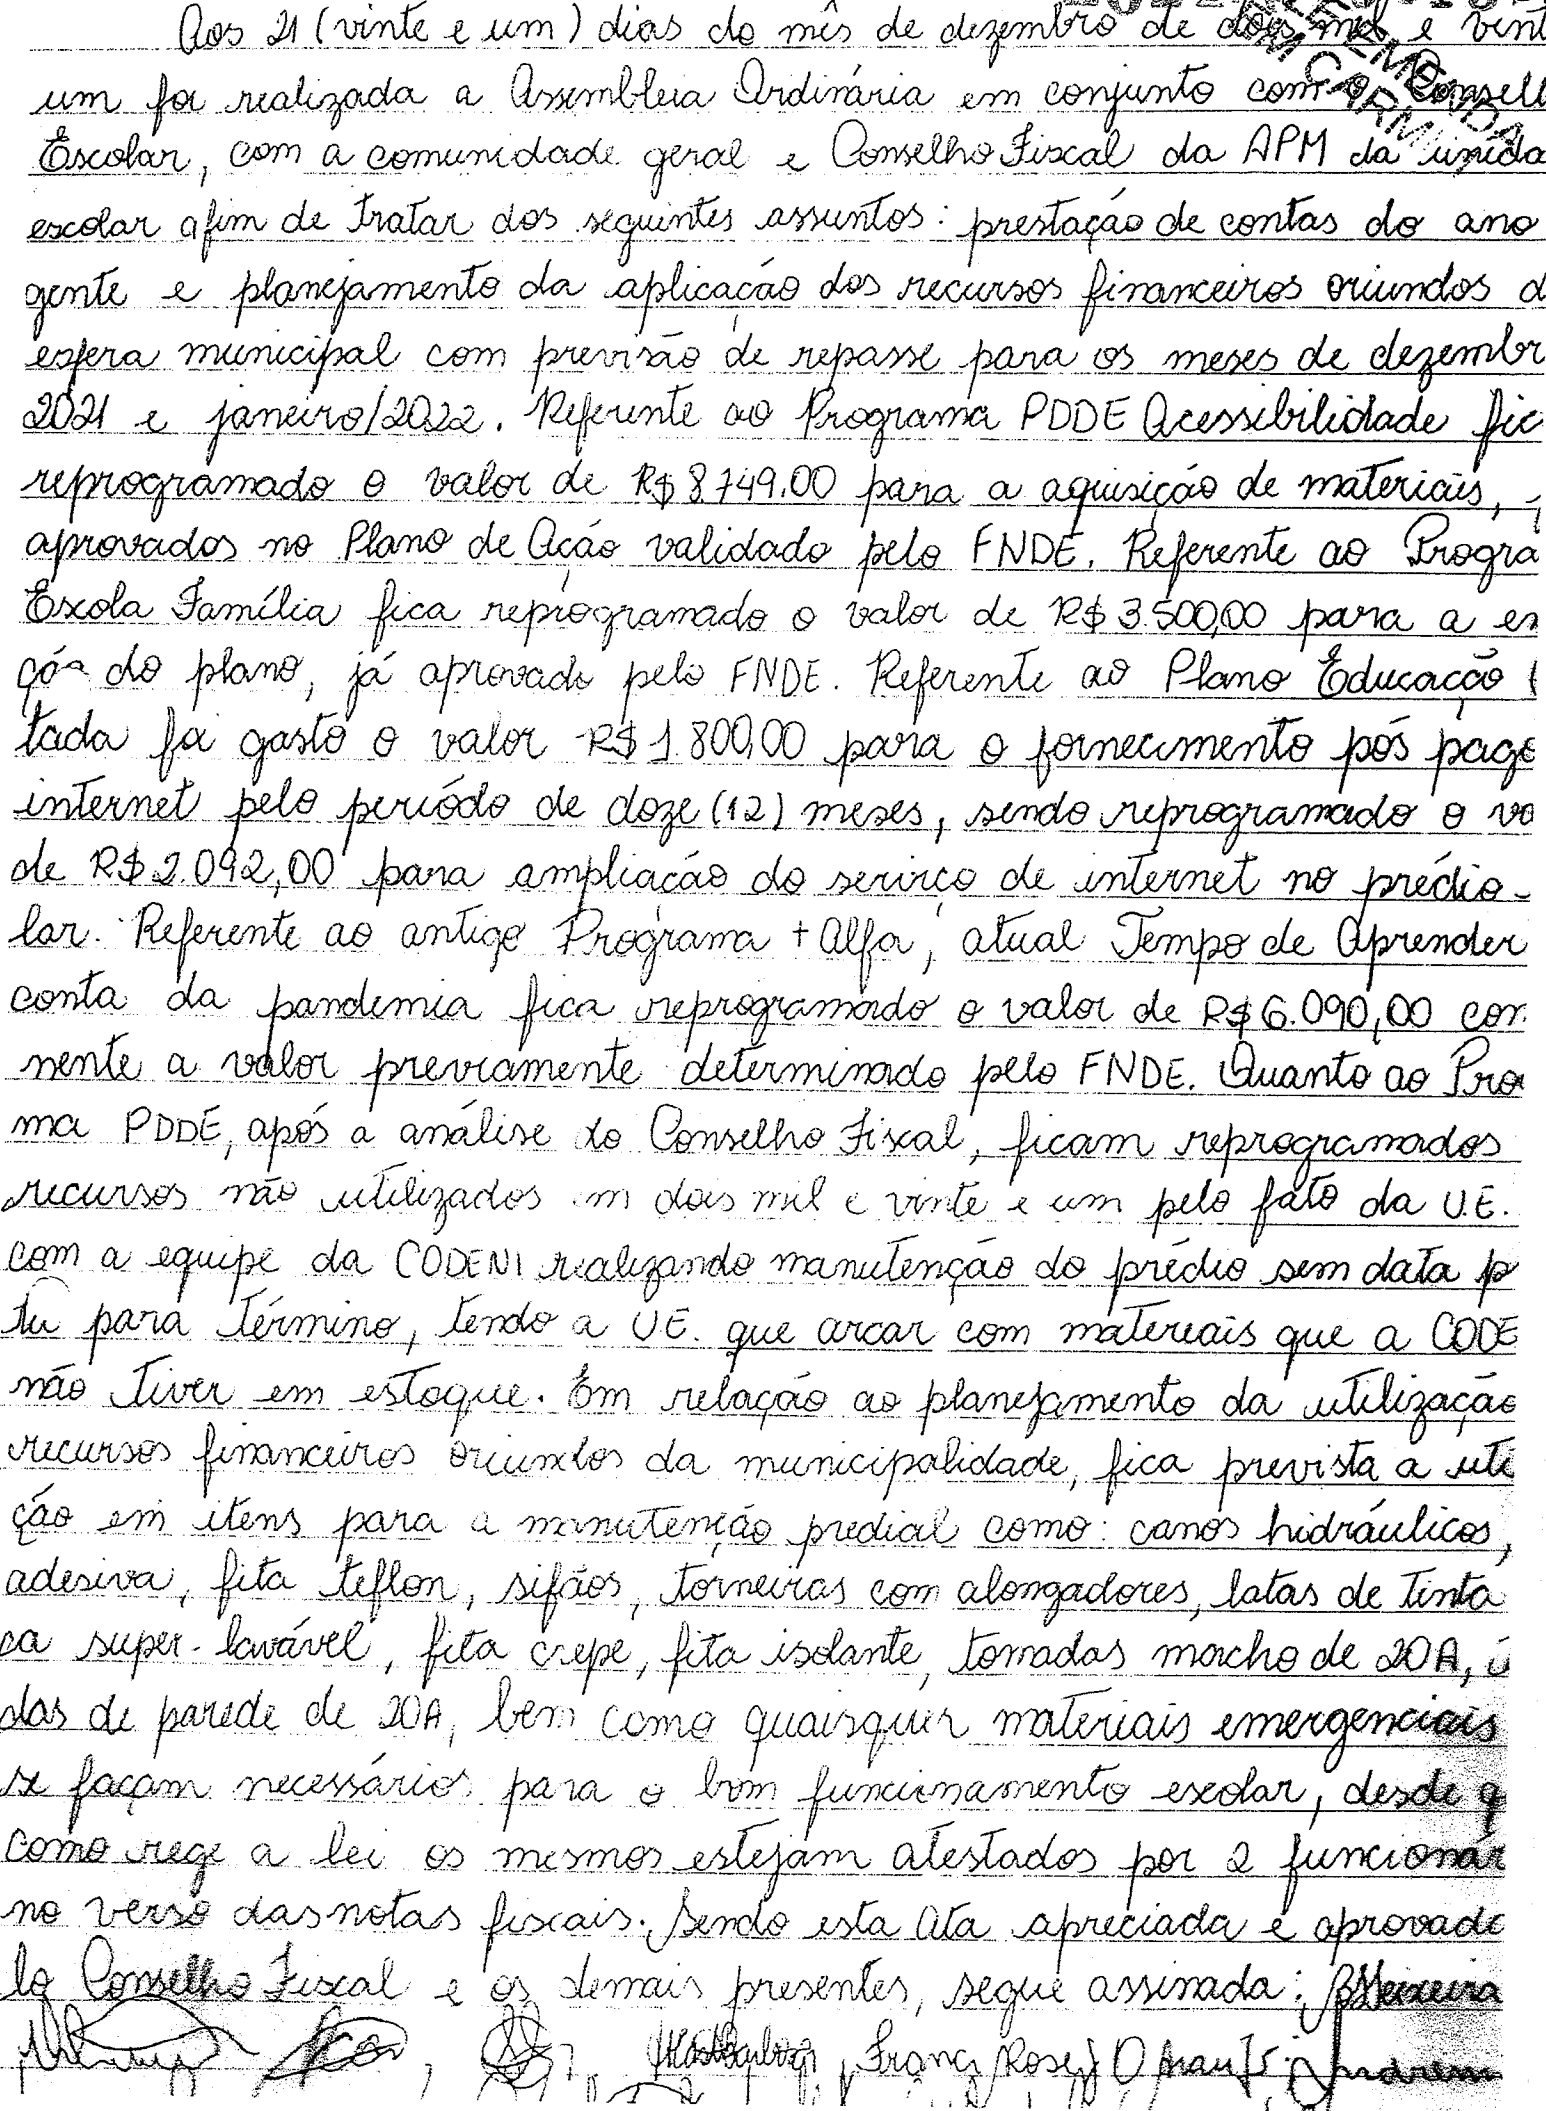 Aos 21 (vinte e um) dias do mês de dezembro de dois mil e vint
um foi realizada a Assembleia Ordinária em conjunto com o Consell
Escolar, com a comunidade geral e Conselho Fiscal da APM da unida
escolar afim de tratar dos seguintes assuntos: prestação de contas do ano
gente e planejamento da aplicação dos recursos financeiros oriundos d
esfera municipal com previsão de repasse para os meses de dezembr
2021 e janeiro/2022. Referente ao Programa PDDE Acessibilidade fic
reprogramado o valor de R$ 8.749,00 para a aquisição de materiais,
aprovados no Plano de Ação validado pelo FNDE. Referente ao Progra
Escola Família fica reprogramado o valor de R$ 3.500,00 para a ex
ção do plano, já aprovado pelo FNDE. Referente ao Plano Educação
tada foi gasto o valor R$ 1.800,00 para o fornecimento pós pago
internet pelo período de doze (12) meses, sendo reprogramado o va
de R$ 2.092,00 para ampliação do serviço de internet no prédio
lar. Referente ao antigo Programa + Alfa, atual Tempo de Aprender
conta da pandemia fica reprogramado o valor de R$ 6.090,00 con
nente a valor previamente determinado pelo FNDE. Quanto ao Pro
ma PDDE, após a análise do Conselho Fiscal, ficam reprogramados
recursos não utilizados em dois mil e vinte e um pelo fato da U.E.
com a equipe da CODENI realizando manutenção do prédio sem data p
tu para término, tendo a U.E. que arcar com materiais que a CODE
não tiver em estoque. Em relação ao planejamento da utilização
recursos financeiros oriundos da municipalidade, fica prevista a uti
ção em itens para a manutenção predial como: canos hidráulicos,
adesiva, fita teflon, sifãos, torneiras com alongadores, latas de tinta
ca super-lavável, fita crepe, fita isolante, tomadas macho de 20A,
das de parede de 20A, bem como quaisquer materiais emergenciais
se façam necessários para o bom funcionamento escolar, desde q
como rege a lei os mesmos estejam atestados por 2 funcionár
no verso das notas fiscais. Sendo esta Ata apreciada e aprovada
lo Conselho Fiscal e os demais presentes, segue assinada: